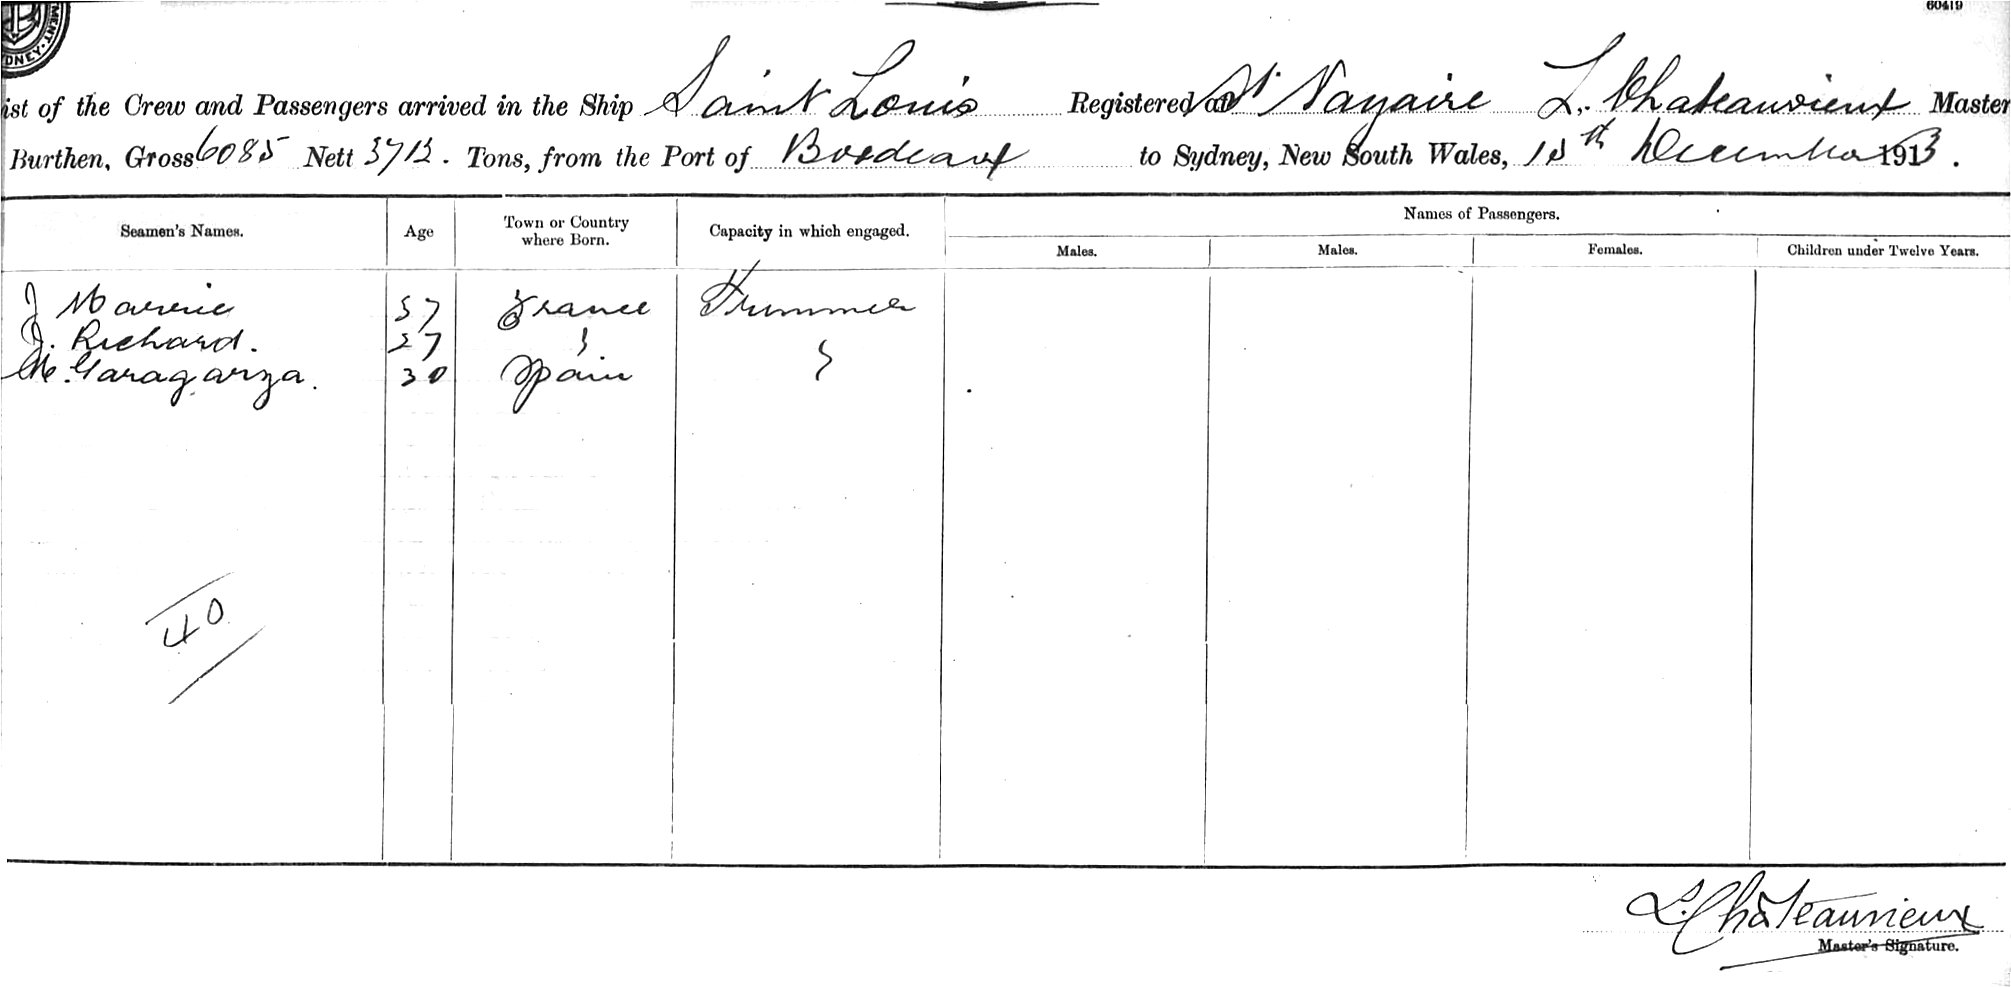 60419
MENT. DNEY.
ist of the Crew and Passengers arrived in the Ship Saint Louis Registered at St Nazaire L. Chateauvieux Master
Burthen, Gross 6085 Nett 3713. Tons, from the Port of Bordeaux to Sydney, New South Wales, 15th December 1913.
Seamen's Names. Age Town or Country where Born. Capacity in which engaged. Names of Passengers.
Males. Males. Females. Children under Twelve Years.
J 37 France Trimmer
J. Richard. 27 "
M. Garagarza. 30 Spain "
40
L. Châteauvieux
Master's Signature.